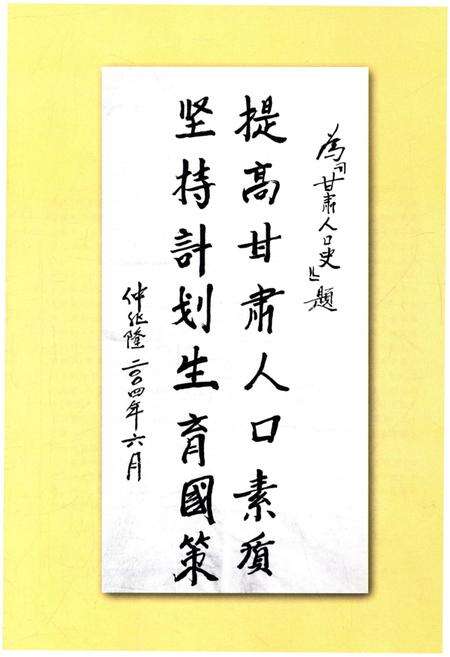 為『甘肃人口史』題
提高甘肃人口素质
坚持計划生育國策
仲兆隆 二〇〇四年六月